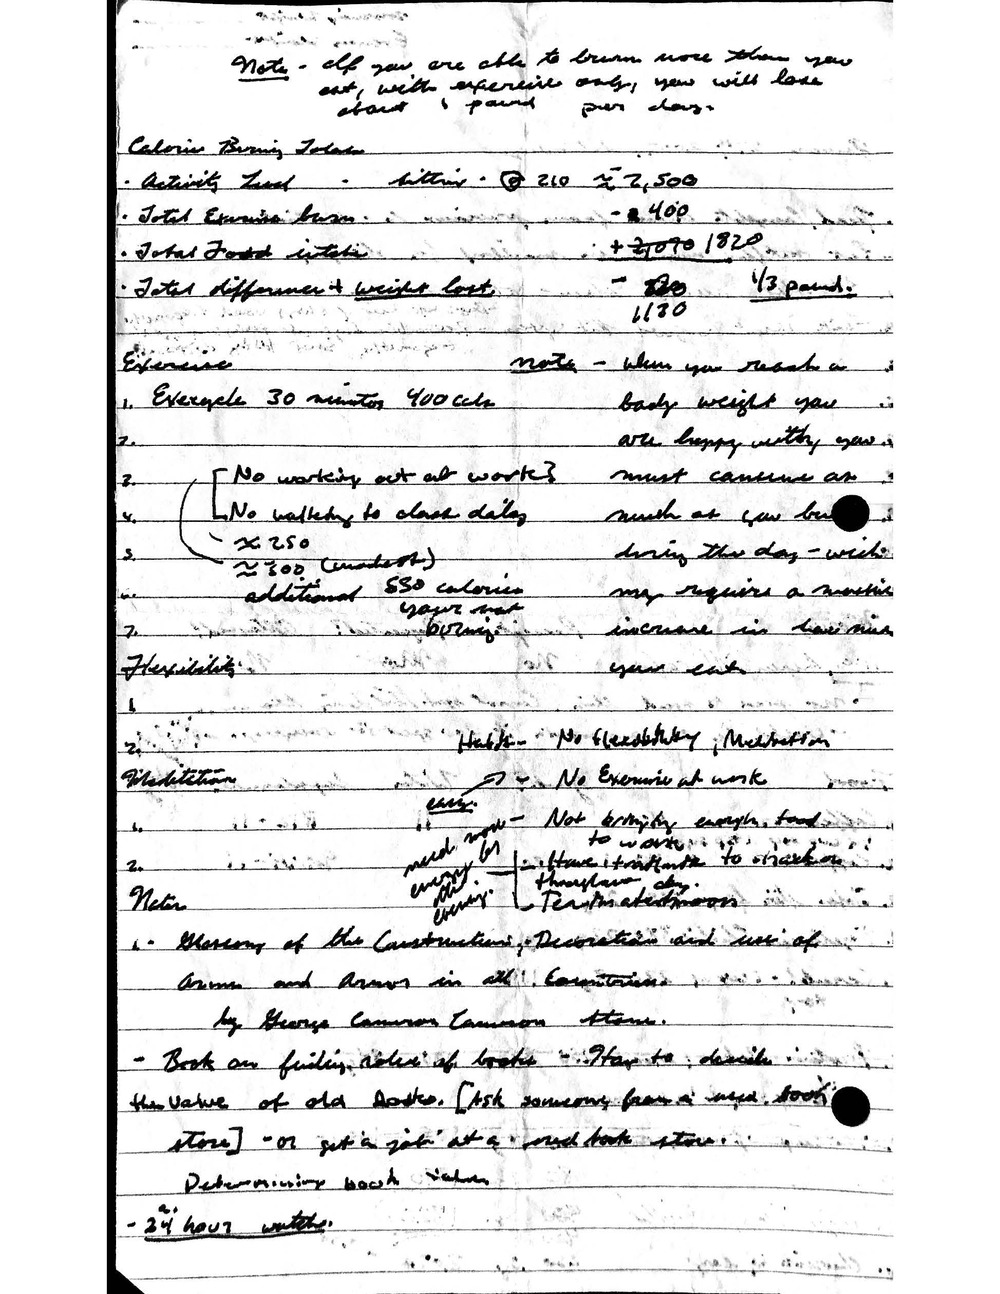 Note - If you are able to burn more than you
eat, with exercise only, you will lose
about 1 pound per day.
Calorie Burning Totals
· Activity Level - sitting · @ 210 ≈ 2,500
· Total Exercise burn. - 400
· Total Food intake + 2,090 1820
· Total difference + weight lost - 1/3 pound.
1130
Exercise note - when you reach a
1. Exercycle 30 minutes 400 cals body weight you
2. are happy with you
3. [No working out at work] must consume as
4. No walking to class daily much as you
≈ 250
5. ≈ 300 during the day - wich
6. additional 550 calories may require a
your not
7. burning. increase in
Flexibility you eat
1.
2. No flexibility, Meditation
Meditation - No Exercise at work
1. easy. - Not bringing enough food
to work
2. need more energy for the evening. - Have to snack on
throughout day.
Notes - Tea in afternoon
1. - Glossary of the Construction, Decoration and use of
Arms and Armor in all Countries.
by George Cameron Cameron Stone.
- Book on finding value of books - How to decide
the value of old books. [Ask someone from a used book
store] - or get a job at a used book store.
Determining book values
- 24 hour watch.